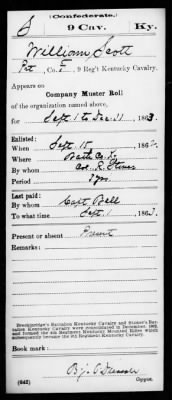 S
(Confederate.)
9 Cav. Ky.
William Scott
Pvt, Co. F, 9 Reg't Kentucky Cavalry.
Appears on
Company Muster Roll
of the organization named above,
for Sept 1 to Dec 31, 1863.
Enlisted:
When Sept 15, 1862.
Where Bath Co. Ky.
By whom Col. R. Stoner
Period 3 yrs
Last paid:
By whom Capt Bell
To what time Sept 1, 1863.
Present or absent Present
Remarks:
Breckinridge's Battalion Kentucky Cavalry and Stoner's Battalion Kentucky Cavalry were consolidated in December, 1862, and formed the 4th Regiment Kentucky Mounted Rifles which subsequently became the 9th Regiment Kentucky Cavalry.
Book mark:
(642)
Copyist.